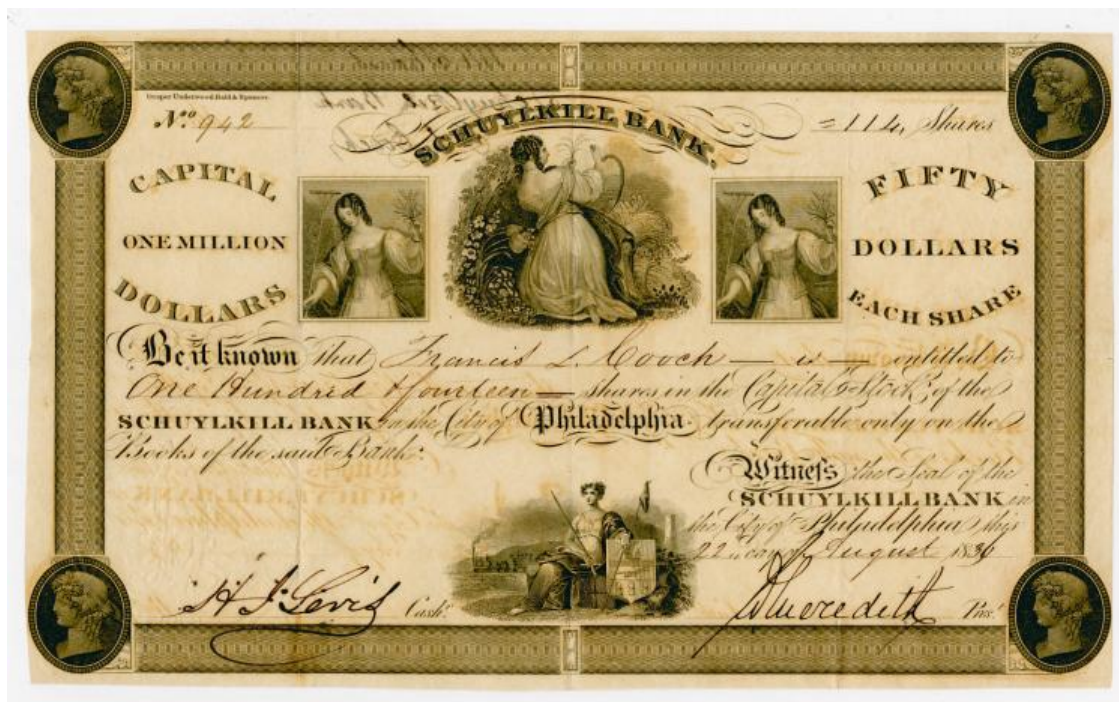 Draper Underwood Bald & Spencer.
No. 942
SCHUYLKILL BANK.
= 114, Shares
CAPITAL
ONE MILLION
DOLLARS
FIFTY
DOLLARS
EACH SHARE
Be it known that Francis L. Cooch — is — entitled to
One Hundred & fourteen — shares in the Capital Stock of the
SCHUYLKILL BANK in the City of Philadelphia transferable only on the
Books of the said Bank.
Witness the Seal of the
SCHUYLKILL BANK in
the City of Philadelphia this
22 day of August 1836
H J. Levis Cashr.
Wm Meredith Prest.